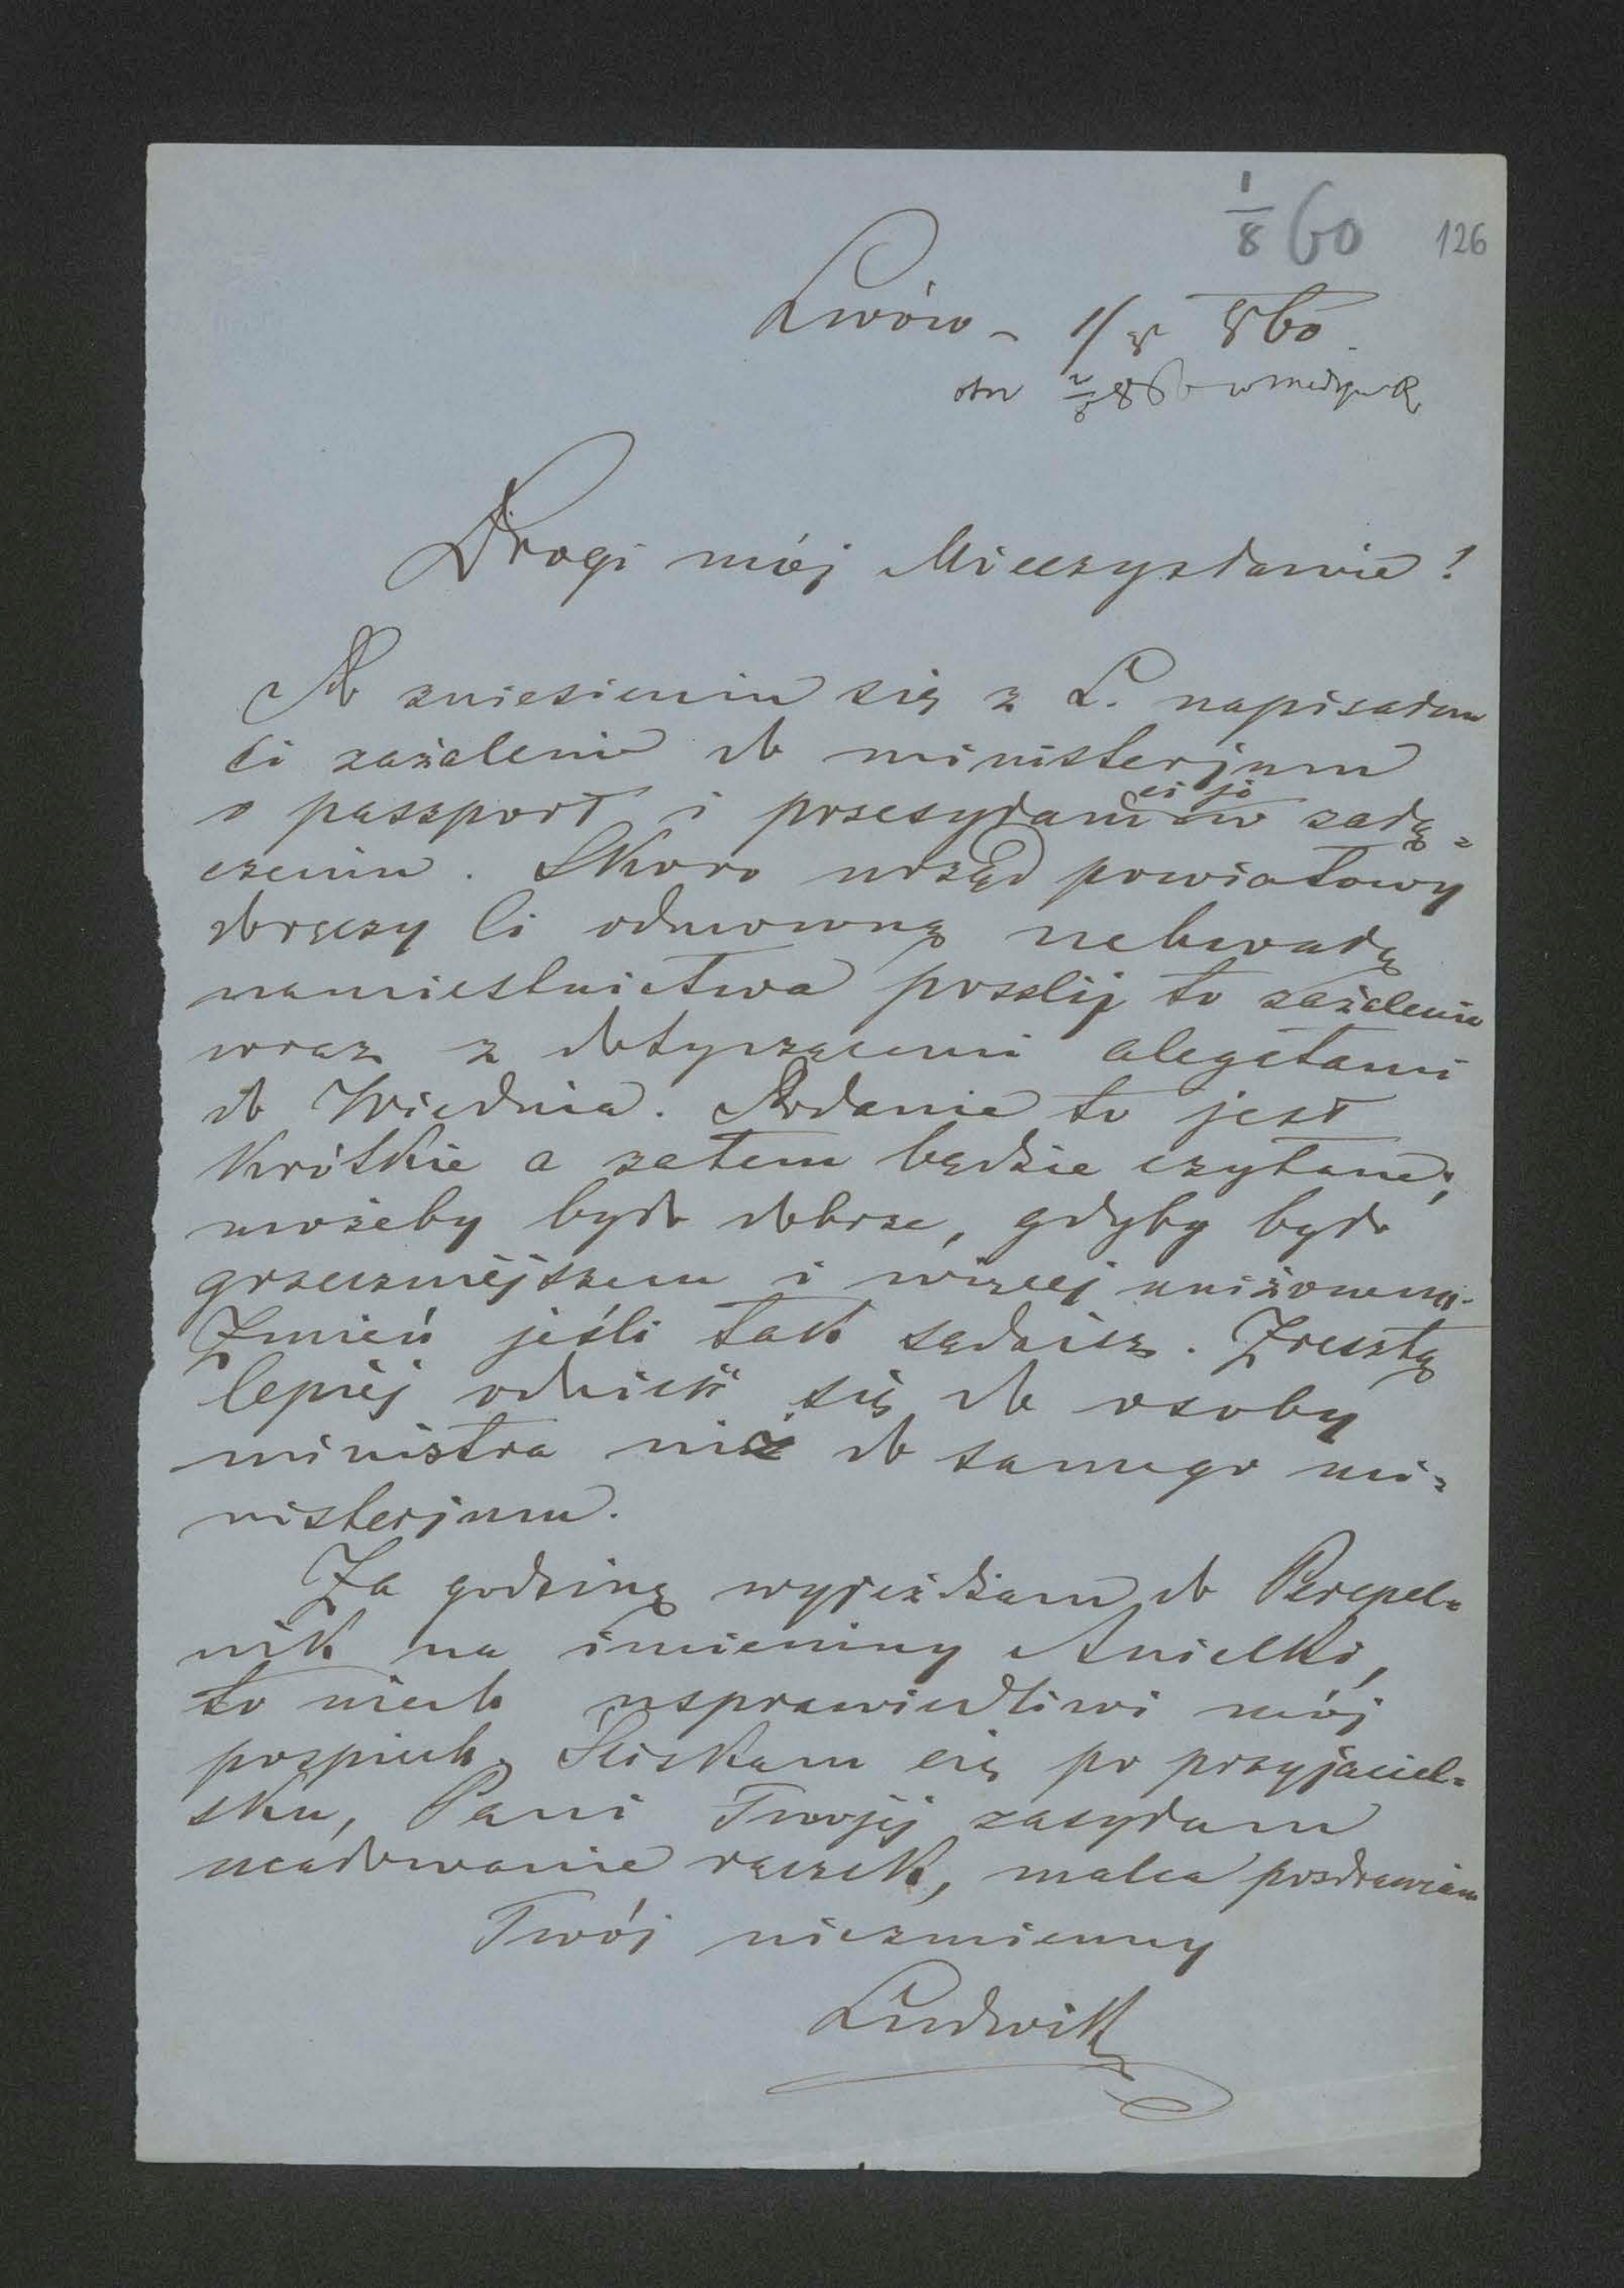 1/8 60 126
Lwów – 1/8 860.
otrz 2/8 860 w Medyce
Drogi mój Mieczysławie!
Po zniesieniu się z L. napisałem
Ci zażalenie do ministerjum
o passport i przesyłam ci je w załą-
czeniu. Skoro urząd powiatowy
doręczy Ci odmowną uchwałę
namiestnictwa poszlij to zażalenie
wraz z dotyczącemi alegatami
do Wiednia. Podanie to jest
krótkie a zatem będzie czytane;
możeby było dobrze, gdyby było
grzeczniejszem i więcej uniżonem.
Zmień jeśli tak sądzisz. Zresztą
lepiej odnieść się do osoby
ministra niż do samego mi-
nisterjum.
Za godzinę wyjeżdżam do Perepel-
nik na imieniny Anielki,
to niech usprawiedliwi mój
pospiech. Ściskam cię po przyjaciel-
sku, Pani Twojéj zasyłam
ucałowanie rączek, malca pozdrawiam
Twój niezmienny
Ludwik